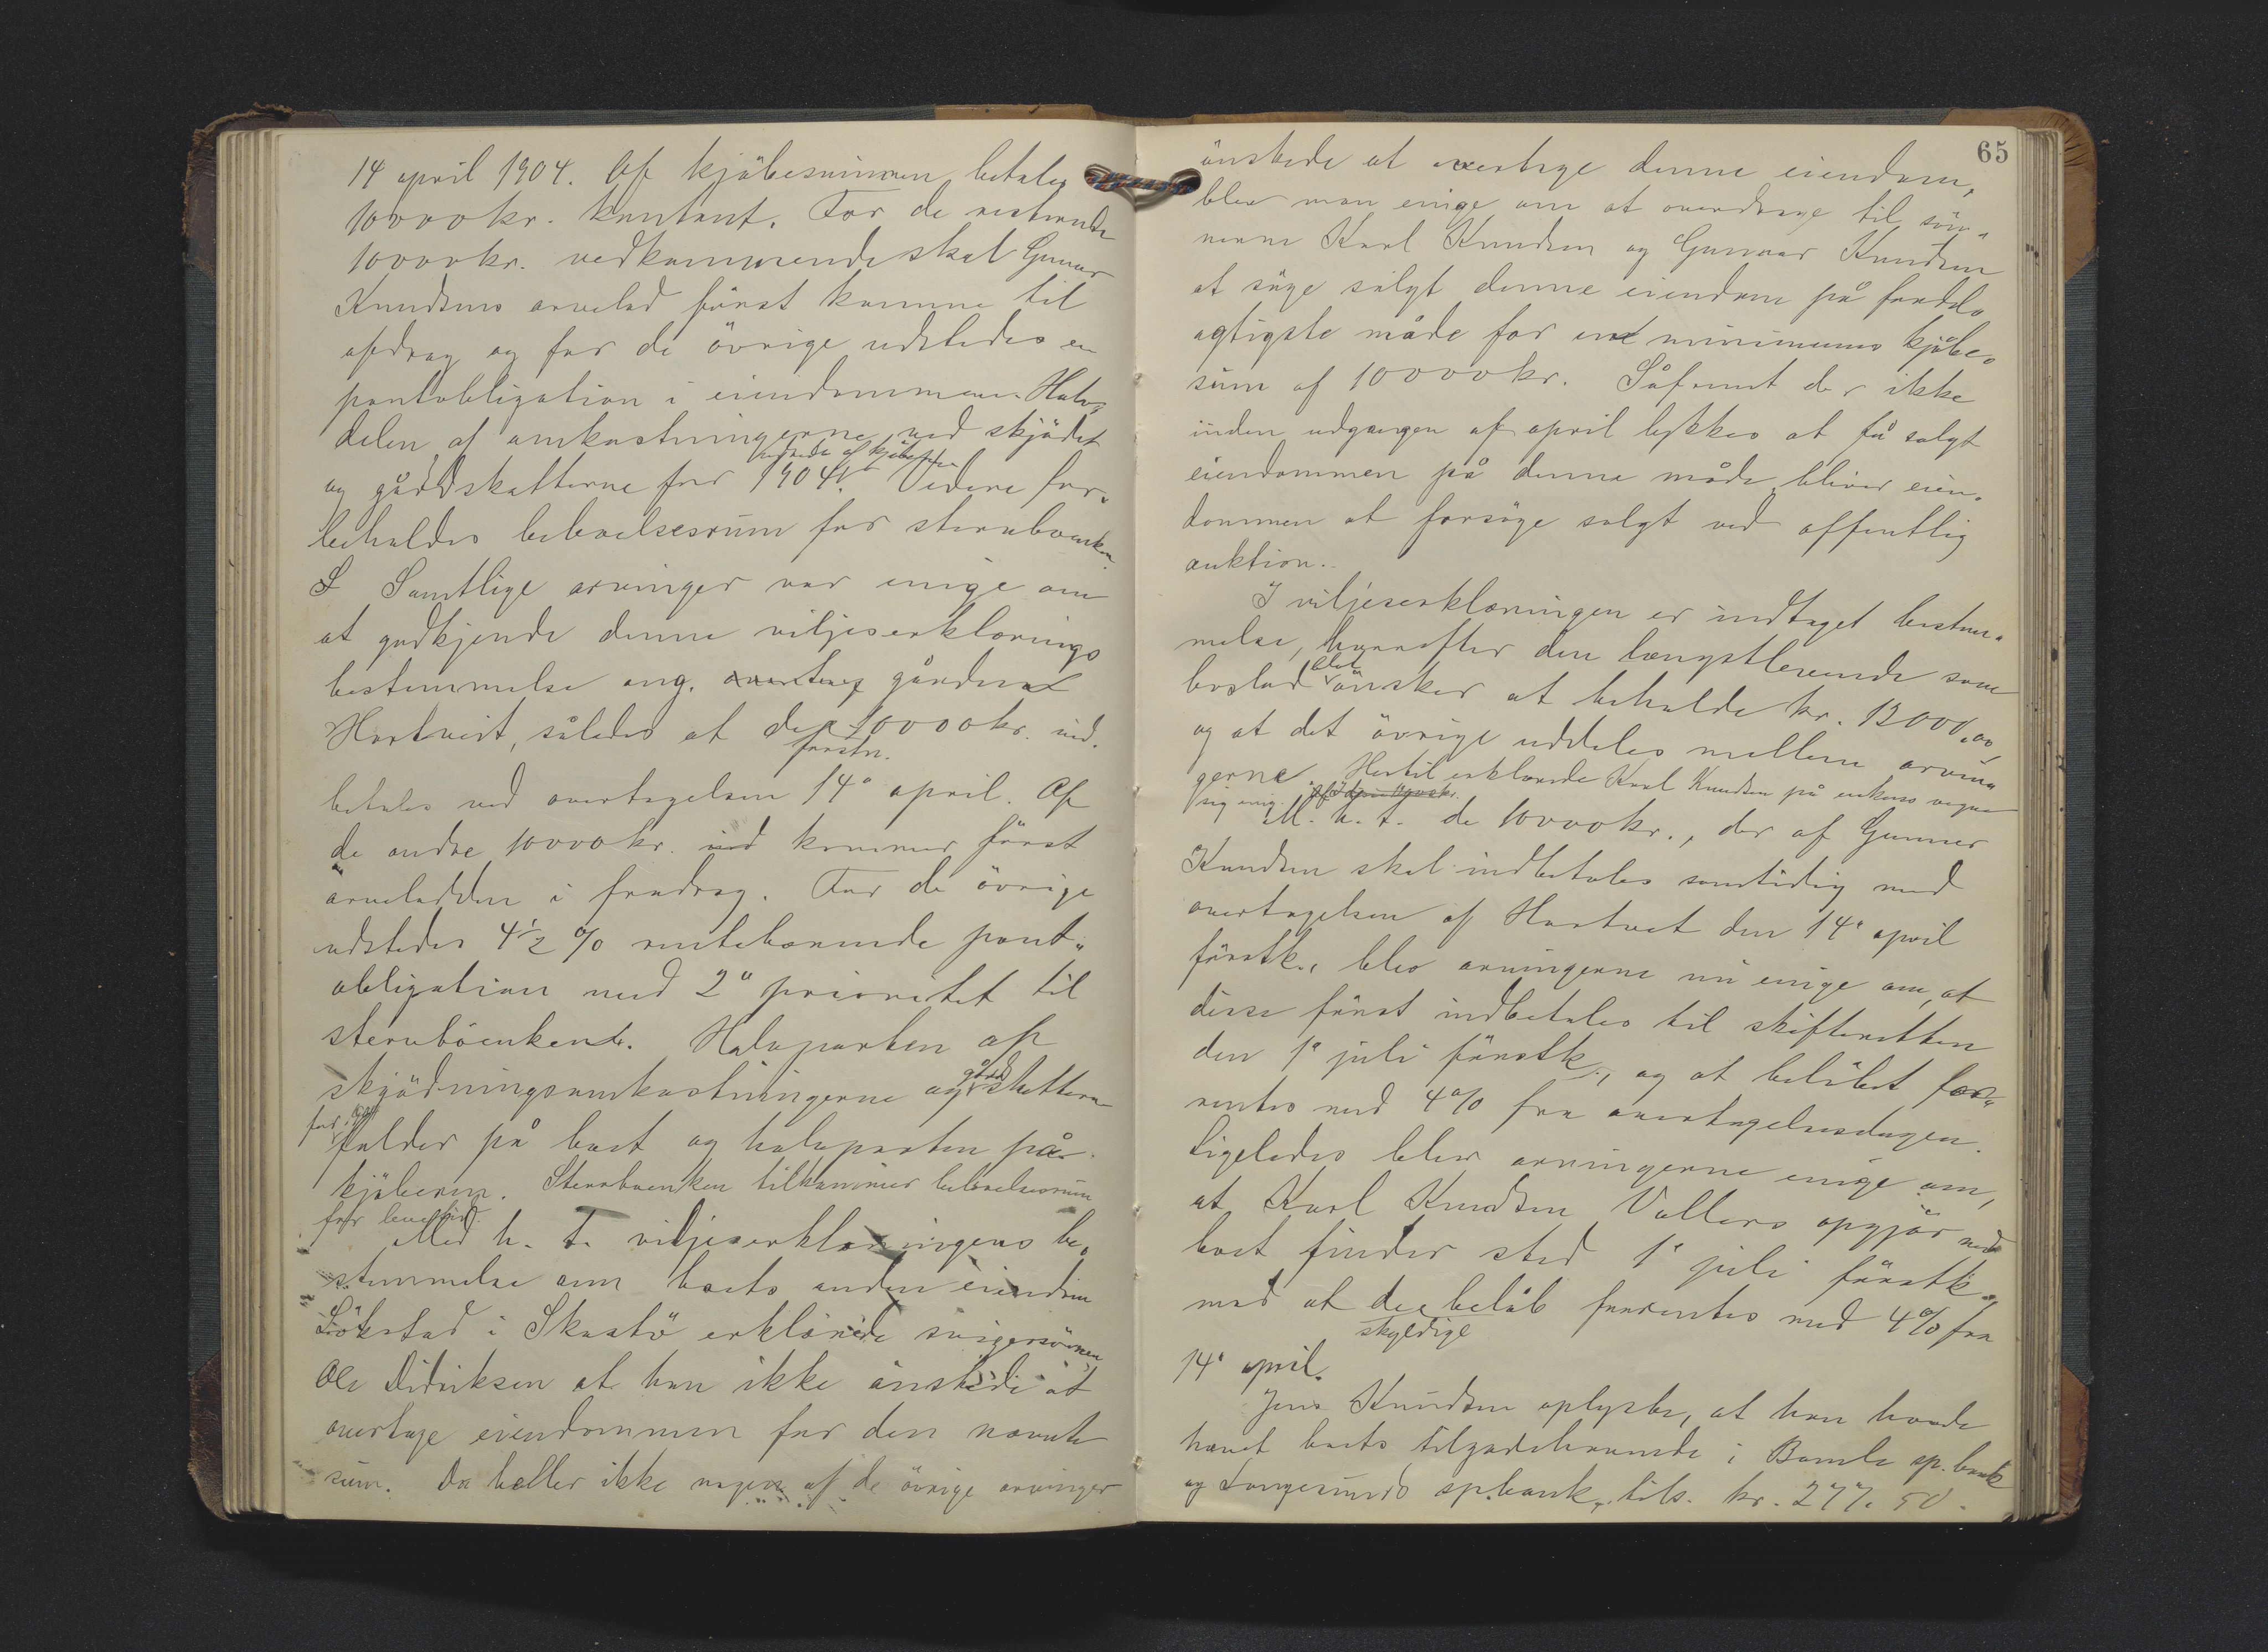 14 april 1904. Af kjöbesummen betales
10000 kr. kontant. For de resterende
10000 kr. vedkommende skal Gunnar
Knudsens arvelod först komme til
afdrag og for de övrige udstedes en
pantobligation i eiendommen. Halv-
delen af omkostningerne ved skjödet
udredes af kjöberen
og gårdskatterne for 1904. Videre for-
beholdes beboelsesrum for stervboenken.
Samtlige arvinger var enige om
at godkjende denne viljeserklærings
bestemmelse ang. overtag gården
Hartveit, således at de 10000 kr. ind-
förstn.
betales ved overtagelsen 14de april. Af
de andre 10000 kr. kommer först
arvelodden i fradrag. For de övrige
udstedes 4 1/2 % rentebærende pant-
obligation med 2den prioritet til
stervboenken. Halvparten af
skjödningsomkostningerne og gårdskatterne
for iår
falder på boet og halvparten på
kjöberen. Stervboenken tilkommer beboelsesrum
for levetid.
Med h. t. viljeserklæringens be-
stemmelse om boets anden eiendom
Lökstad i Skåtö erklærede svigersönnen
Ole Didriksen at han ikke önskede at
overtage eiendommen for den nævnte
sum. Da heller ikke nogen af de övrige arvinger
65
önskede at overtage denne eiendom,
blev man enige om at overdrage til sön-
nerne Karl Knudsen og Gunnar Knudsen
at söge solgt denne eiendom på fordel-
agtigste måde for en minimums kjöbe-
sum af 10000 kr. Såfremt det ikke
inden udgangen af april lykkes at få solgt
eiendommen på denne måde, bliver eien-
dommen at forsöge solgt ved offentlig
auktion.
I viljeserklæringen er indtaget bestem-
melse, hvorefter den længstlevende som
boslod blot önsker at beholde kr. 12000,00
og at det övrige uddeles mellem arvin-
gerne. Hertil erklærede Karl Knudsen på enkens vegne
sig enig.
M. h. t. de 10000 kr., der af Gunnar
Knudsen skal indbetales samtidig med
overtagelsen af Hartveit den 14de april
förstk., blev arvingerne nu enige om, at
disse först indbetales til skifteretten
den 1ste juli förstk., og at belöbet for-
rentes med 4 % fra overtagelsesdagen.
Ligeledes blev arvingerne enige om,
at Karl Knudsen Valleros opgjör med
boet finder sted 1ste juli förstk.,
mod at det belöb forrentes med 4 % fra
skyldige
14de april.
Jens Knudsen oplyste, at han havde
hævet boets tilgodehavende i Bamle sp.bank
og Langesunds sp.bank, tils. kr. 277.50.